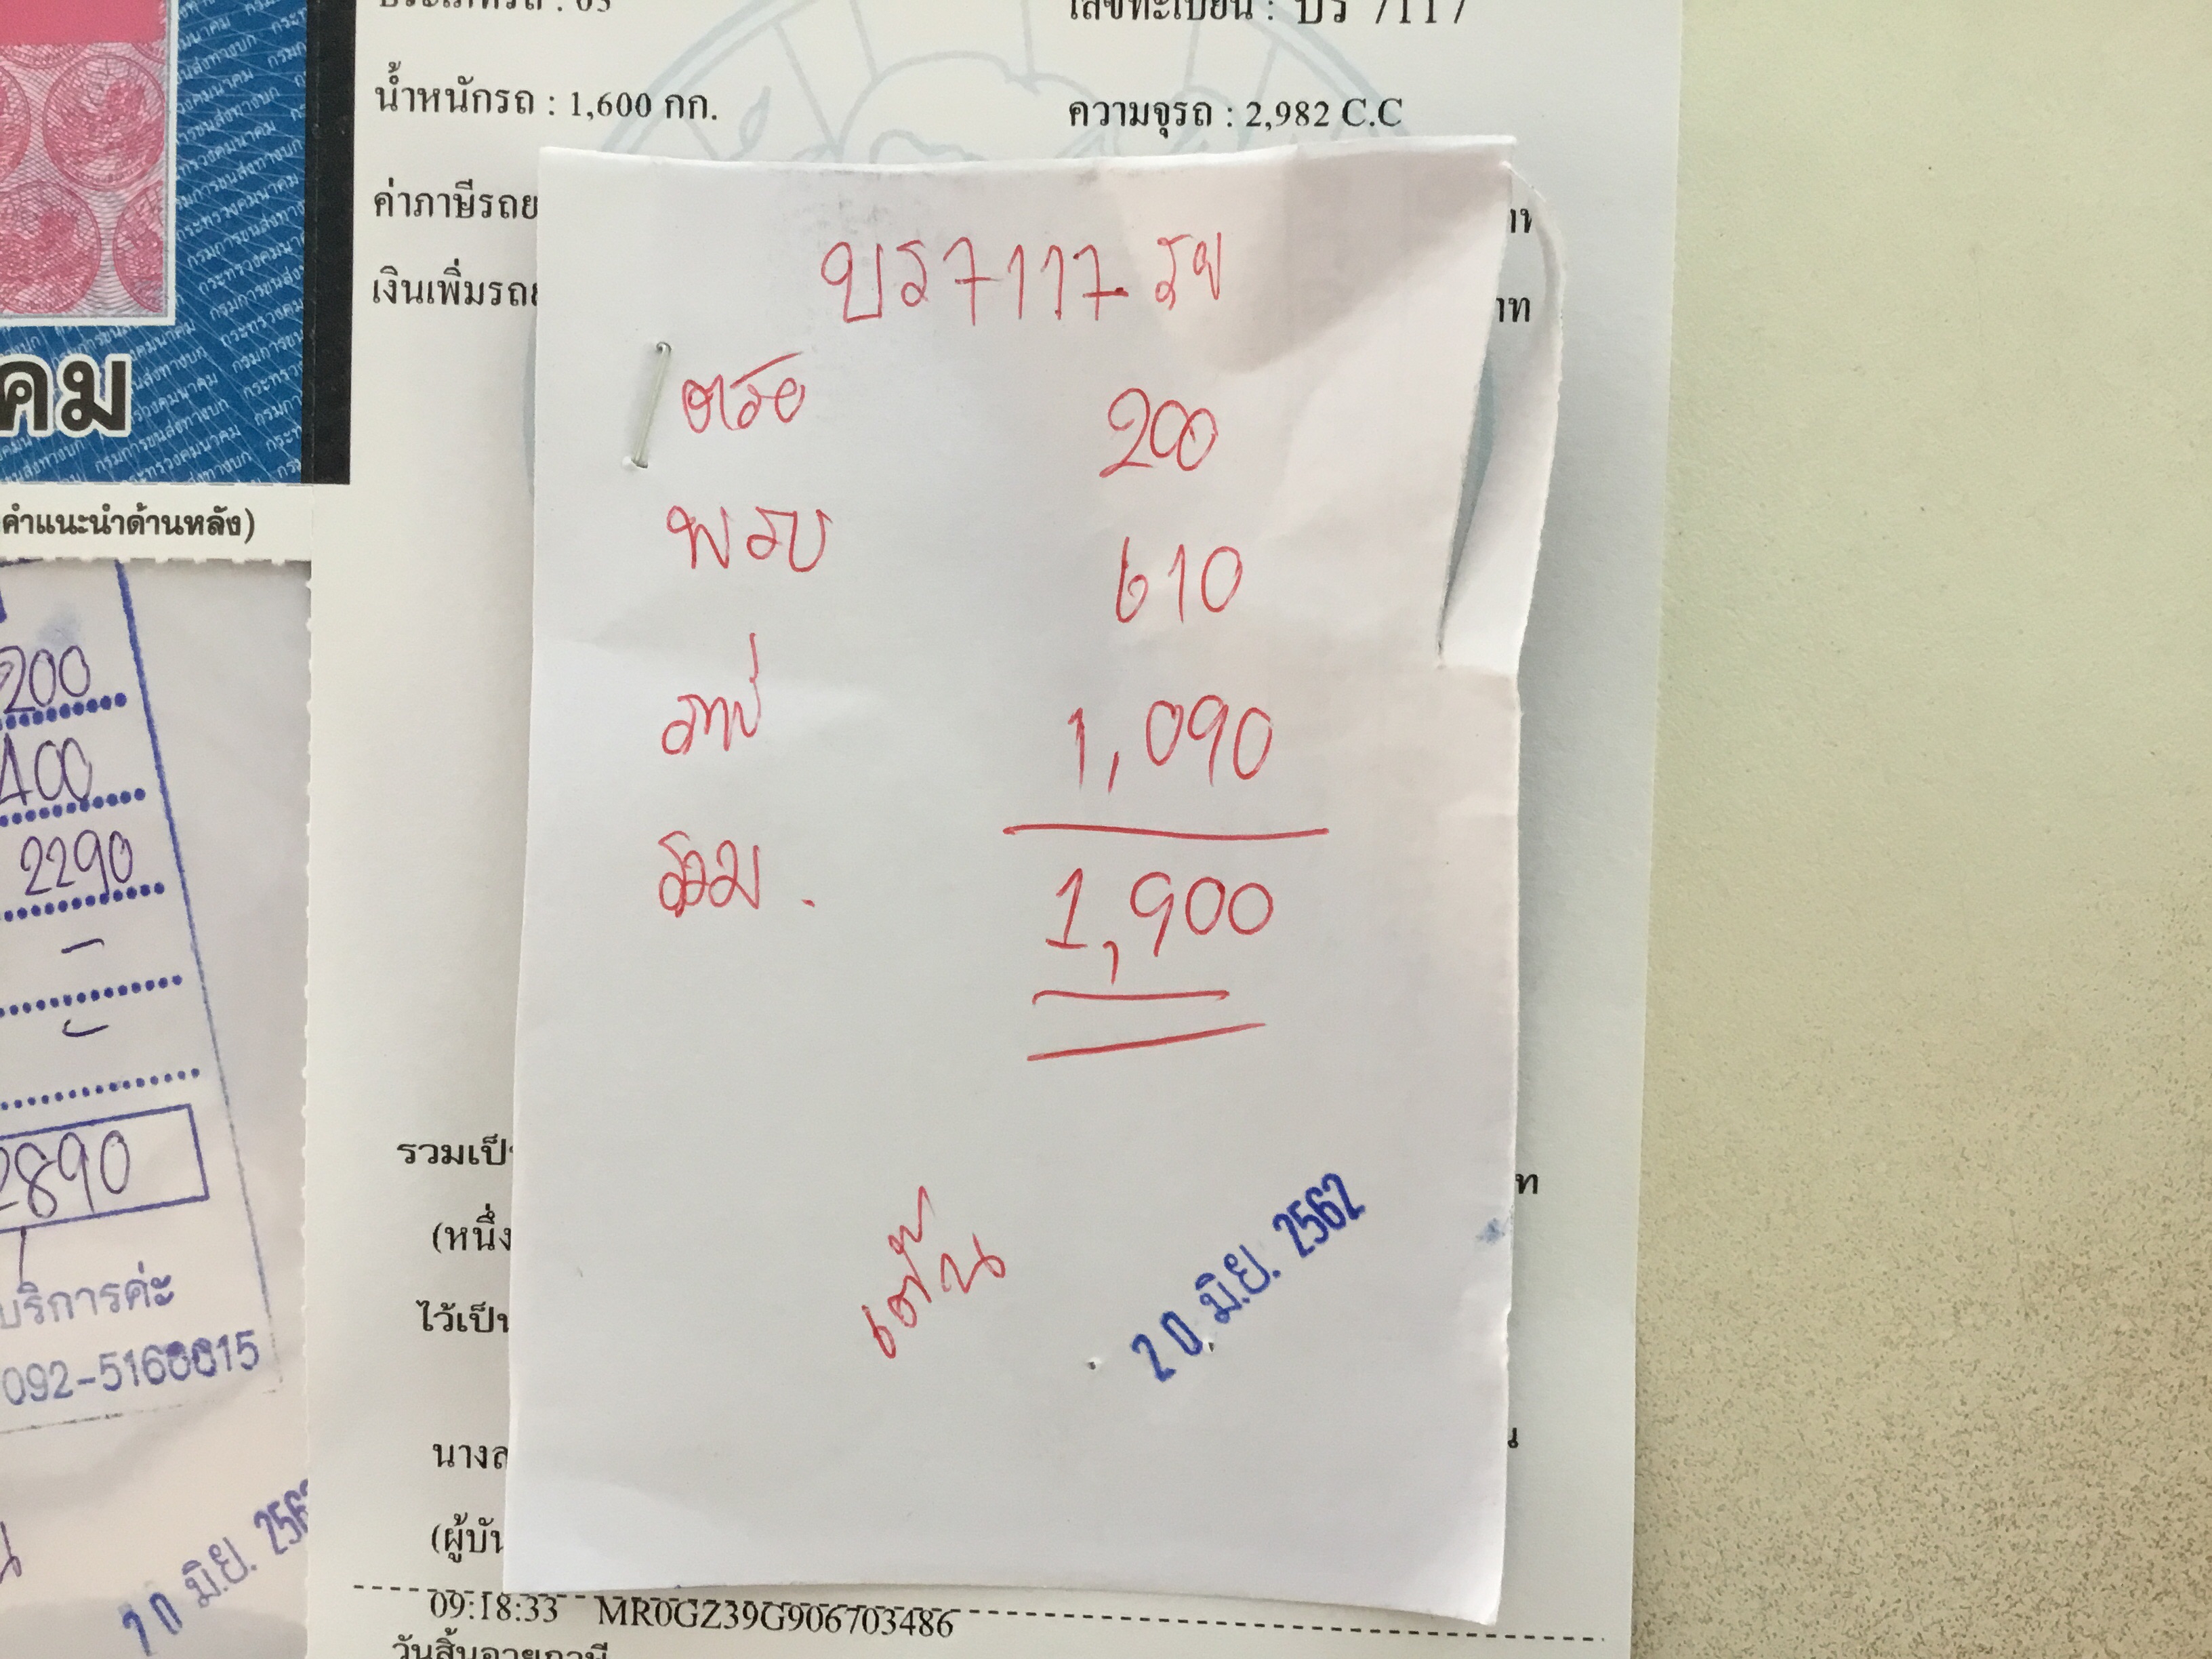 เลขทะเบียน : บร 7117
น้ำหนักรถ : 1,600 กก.
ความจุรถ : 2,982 C.C
ค่าภาษีรถย
เงินเพิ่มรถย
าท
บร 7117. รย
ตรอ 200
พรบ 610
ภาษี 1,090
รวม. 1,900
เต้น
20 มิ.ย. 2562
คม
คำแนะนำด้านหลัง)
200
400
2290
-
-
2890
บริการค่ะ
092-5166615
20 มิ.ย. 256
รวมเป็น
(หนึ่ง
ไว้เป็น
นางล
(ผู้บัน
09:18:33 MR0GZ39G906703486
วันสิ้นอายุภาษี